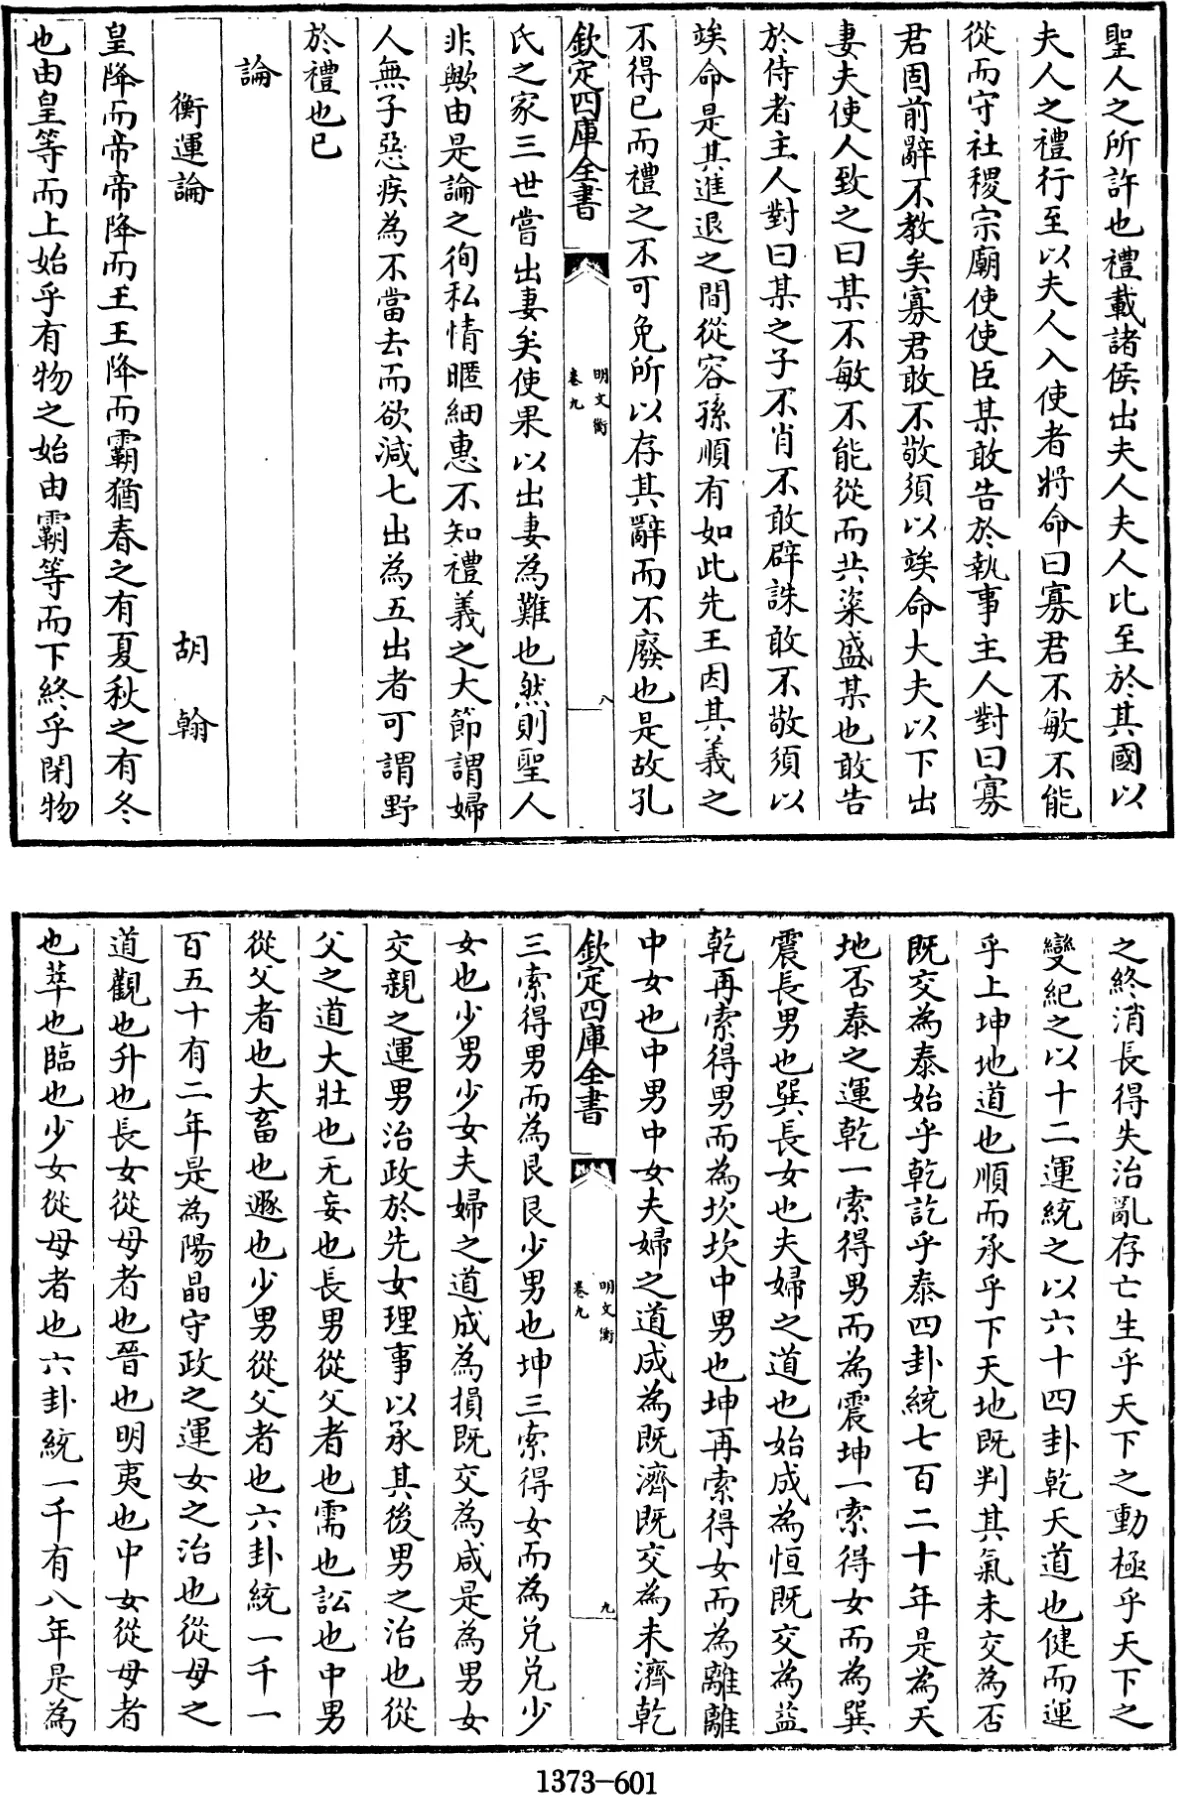 聖人之所許也禮載諸侯出夫人夫人比至於其國以
夫人之禮行至以夫人入使者將命曰寡君不敏不能
從而守社稷宗廟使使臣某敢告於執事主人對曰寡
君固前辭不教矣寡君敢不敬須以竢命大夫以下出
妻夫使人致之曰某不敏不能從而共粢盛某也敢告
於侍者主人對曰某之子不肖不敢辟誅敢不敬須以
竢命是其進退之間從容孫順有如此先王因其義之
不得已而禮之不可免所以存其辭而不廢也是故孔
欽定四庫全書
明文衡
卷九
八
氏之家三世嘗出妻矣使果以出妻為難也然則聖人
非歟由是論之徇私情暱細惠不知禮義之大節謂婦
人無子惡疾為不當去而欲減七出為五出者可謂野
於禮也已
論
衡運論 胡翰
皇降而帝帝降而王王降而霸猶春之有夏秋之有冬
也由皇等而上始乎有物之始由霸等而下終乎閉物
之終消長得失治亂存亡生乎天下之動極乎天下之
變紀之以十二運統之以六十四卦乾天道也健而運
乎上坤地道也順而承乎下天地既判其氣未交為否
既交為泰始乎乾訖乎泰四卦統七百二十年是為天
地否泰之運乾一索得男而為震坤一索得女而為巽
震長男也巽長女也夫婦之道也始成為恒既交為益
乾再索得男而為坎坎中男也坤再索得女而為離離
中女也中男中女夫婦之道成為既濟既交為未濟乾
欽定四庫全書
明文衡
卷九
九
三索得男而為艮艮少男也坤三索得女而為兌兌少
女也少男少女夫婦之道成為損既交為咸是為男女
交親之運男治政於先女理事以承其後男之治也從
父之道大壯也无妄也長男從父者也需也訟也中男
從父者也大畜也遯也少男從父者也六卦統一千一
百五十有二年是為陽晶守政之運女之治也從母之
道觀也升也長女從母者也晉也明夷也中女從母者
也萃也臨也少女從母者也六卦統一千有八年是為
1373-601